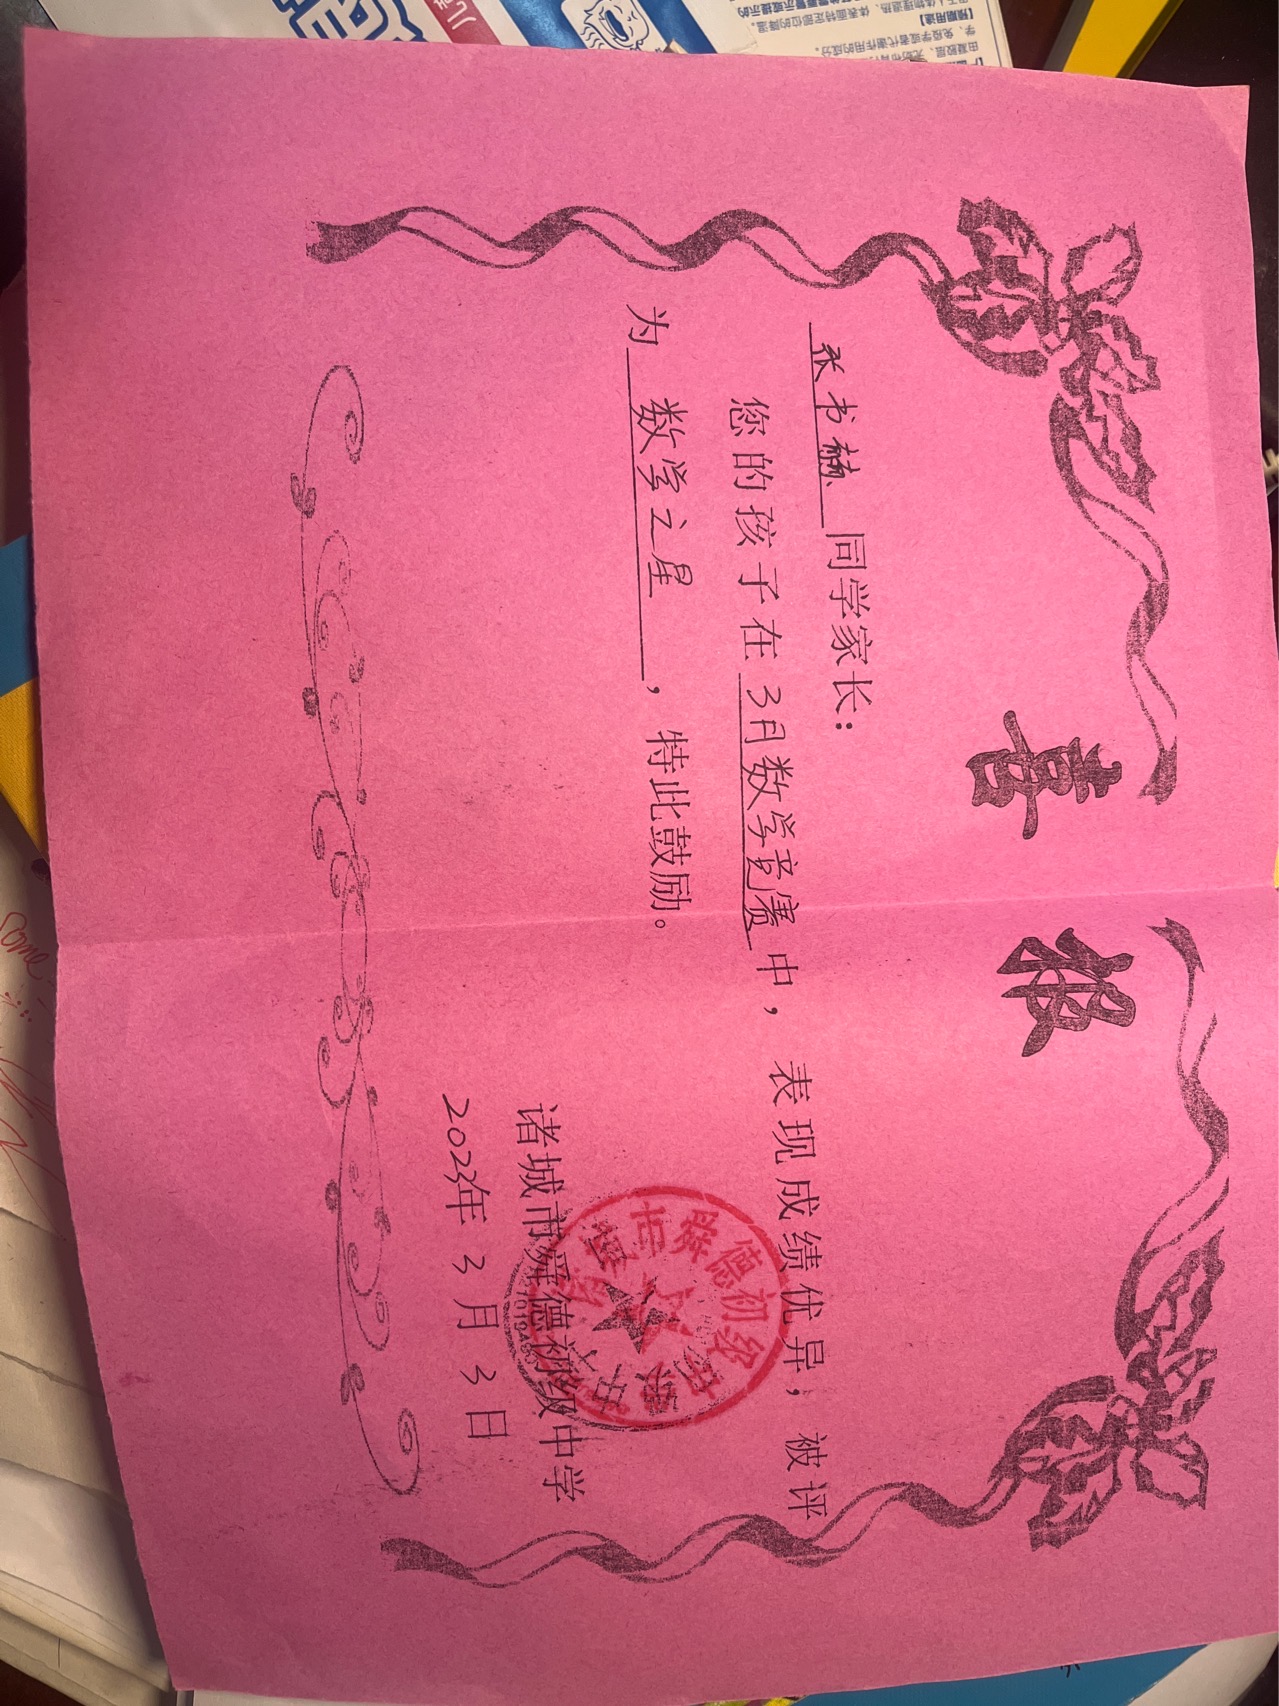 喜报
张书赫同学家长：
您的孩子在3月数学竞赛中，表现成绩优异，被评
为数学之星，特此鼓励。
诸城市舜德初级中学
2023年3月3日
诸城市舜德初级中学
Some